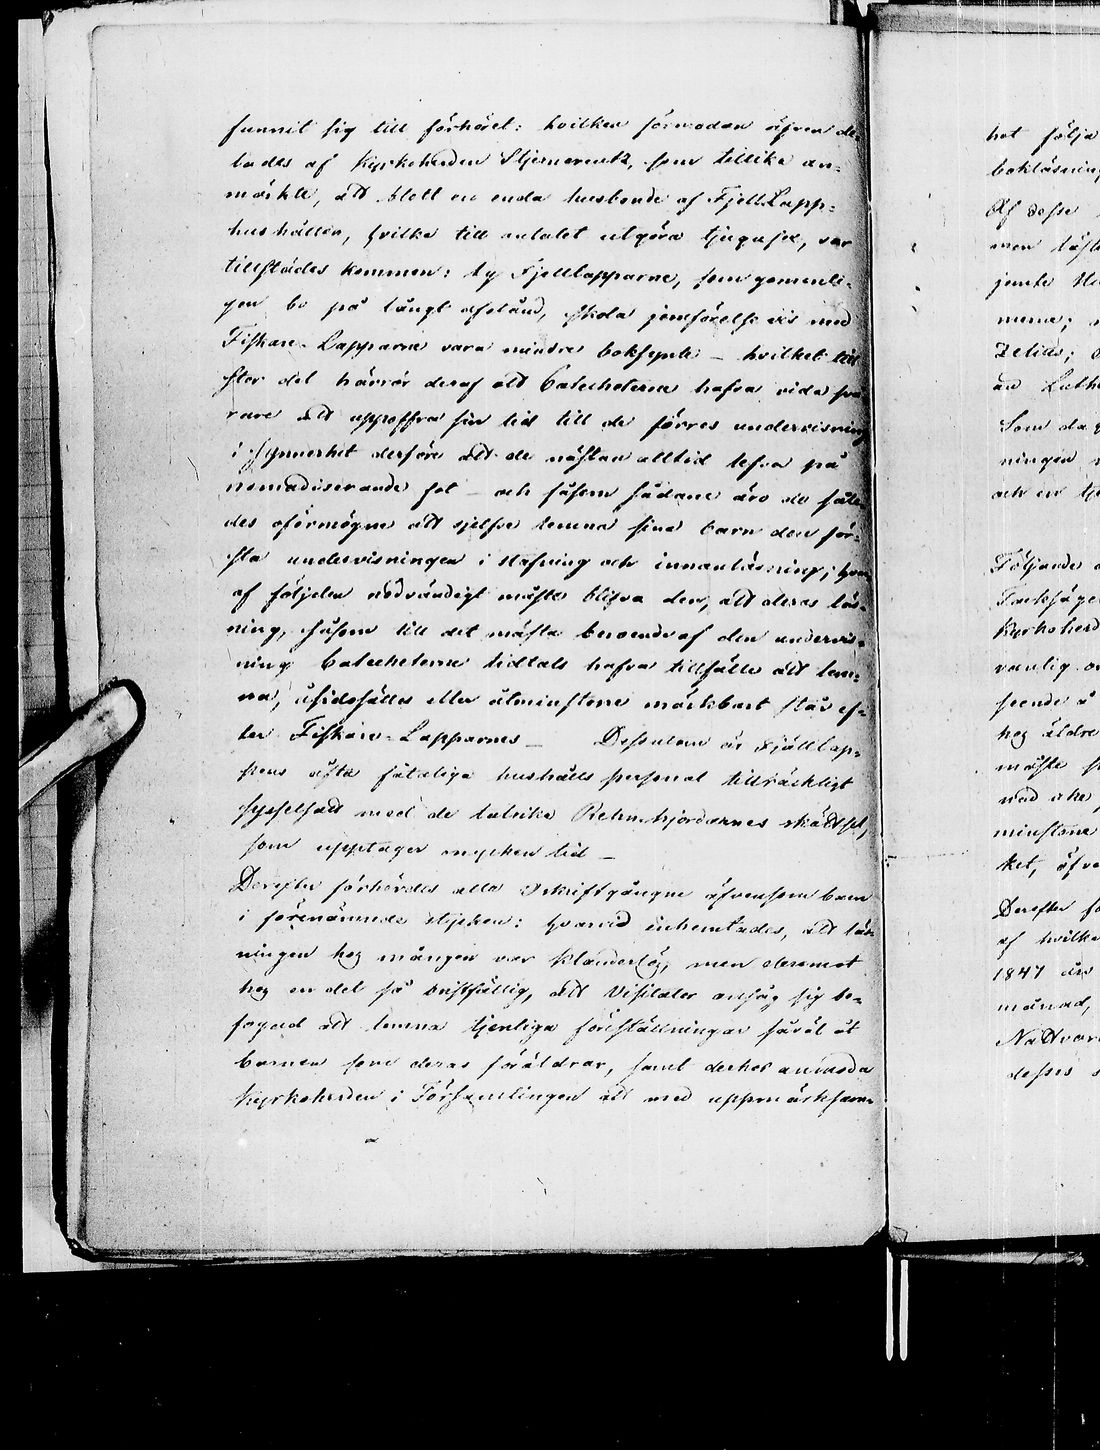 funnit sig till förhöret: hvilken förmodan äfven de-
lades af Kyrkoherden, som tillika an-
märkte, att blott en enda husbonde af Fjell-Lapp-
hushållen, hvilka till antalet utgöra tjugusex, var
tillstädes kommen: ty Fjellapparne, som gemenli-
gen bo på långt afstånd, skola jemförelsevis med
Fiskare-Lapparne vara mindre bokfynte – hvilket till
stor del härrör deraf att Catecheterne hafva vida svå-
rare att uppoffra sin tid till de förres undervisning
i synnerhet derföre att de nästan alltid lefva på
nomadiserande fot – och såsom sådane äro de såle-
des oförmögne att sjelfve lemna sina barn den för-
sta undervisningen i stafning och innanläsning; hvar-
af följden nödvändigt måste blifva den, att deras läs-
ning, såsom till det mästa beroende af den undervis-
ning Catecheterne tidtals hafva tillfälle att lem-
na, åsidosättes eller åtminstone märkbart står ef-
ter Fiskare-Lapparnes – Dessutom är Fjällap-
pens ofta fåtaliga hushålls personal tillräckligt
sysselsatt med de talrika Rehnhjordarnes skötsel,
som upptager mycken tid –
Derefter förhördes alla Oskriftgångne äfvensom barn
i förenämnde stycken: hvarvid inhemtades, att läs-
ningen hos mången var klanderlös, men deremot
hos en del så bristfällig, att Visitator ansåg sig be-
fogad att lemna tjenliga föreställningar såväl åt
barnen som deras föräldrar, samt derhos anmoda
Kyrkoherden i Församlingen att med uppmärksam-
het följa
bokläsning
Af desse
men läste
jemte
Zelius;
en Luth
Som
ningen
och en
Följande
Kyrkoherd
vanlig
seende å
hos äldre
måste
minstone
ket, äfve
Derefter
af hvilke
1847 års
månad,
Nattvar
desses